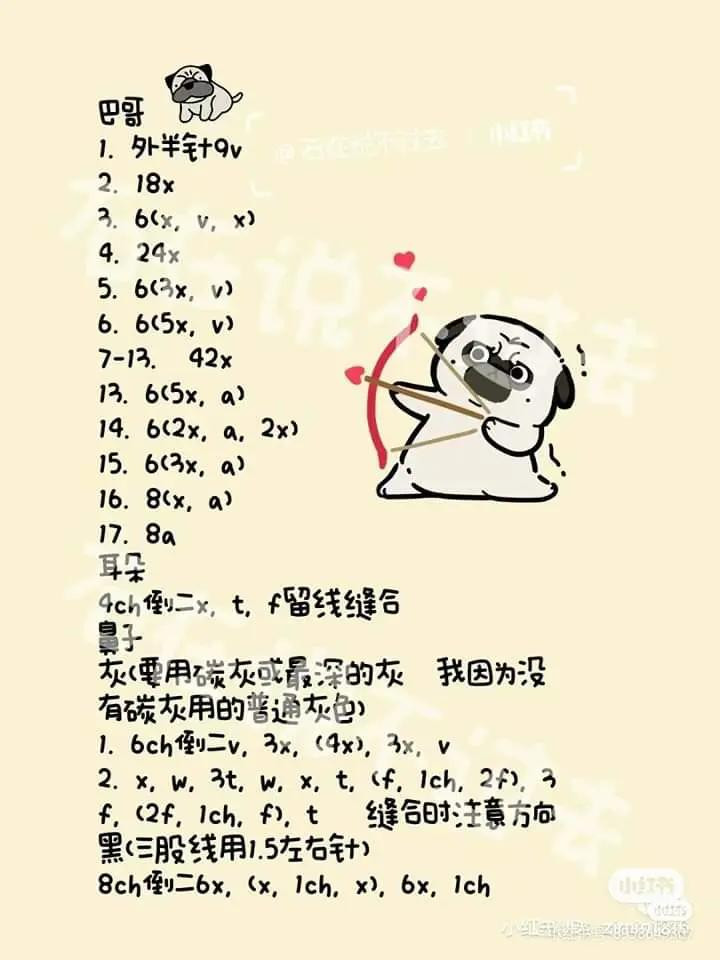 巴哥
1. 外半针9v
2. 18x
3. 6(x, v, x)
4. 24x
5. 6(3x, v)
6. 6(5x, v)
7-13. 42x
13. 6(5x, a)
14. 6(2x, a, 2x)
15. 6(3x, a)
16. 8(x, a)
17. 8a
耳朵
4ch倒二x, t, f留线缝合
鼻子
灰(要用碳灰或最深的灰 我因为没
有碳灰用的普通灰色)
1. 6ch倒二v, 3x, (4x), 3x, v
2. x, w, 3t, w, x, t, (f, 1ch, 2f), 3
f, (2f, 1ch, f), t 缝合时注意方向
黑(三股线用1.5左右针)
8ch倒二6x, (x, 1ch, x), 6x, 1ch
小红书
小红书